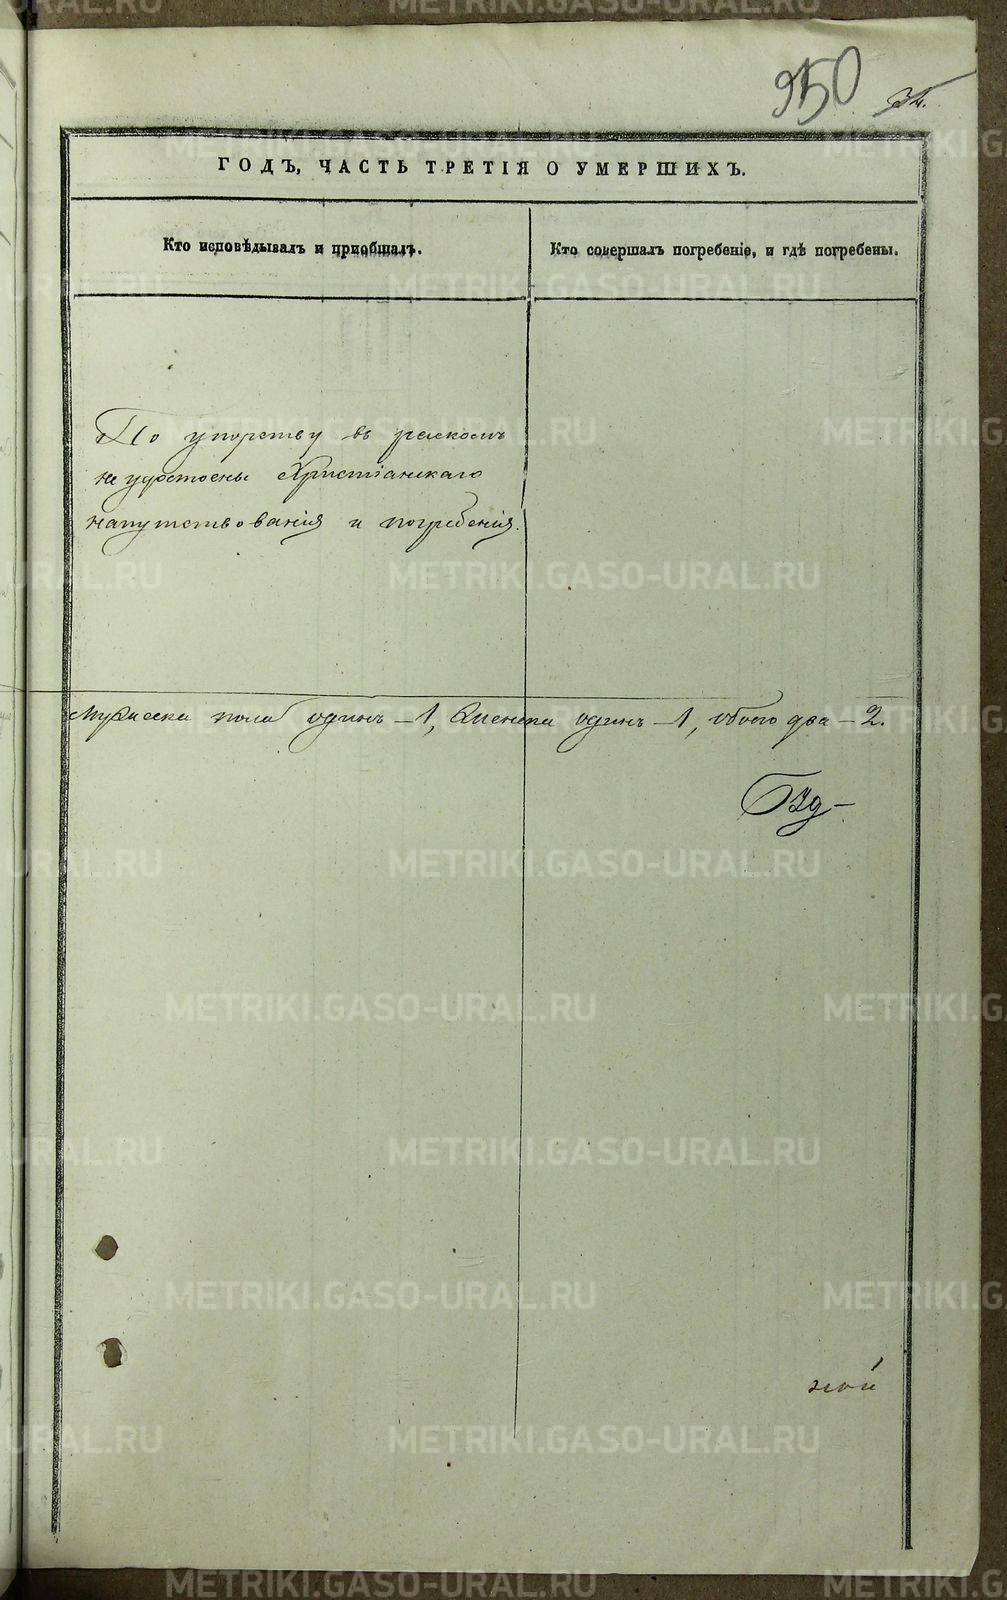 950
34.
ГОДЪ, ЧАСТЬ ТРЕТІЯ О УМЕРШИХЪ.
Кто исповѣдывалъ и пріобщалъ.
Кто совершалъ погребеніе, и гдѣ погребены.
По упорству въ расколѣ
не удостоены Христіанскаго
напутствованія и погребенія.
Мужеска пола одинъ – 1, Женска одинъ – 1, обоего два – 2.
ной
METRIKI.GASO-URAL.RU